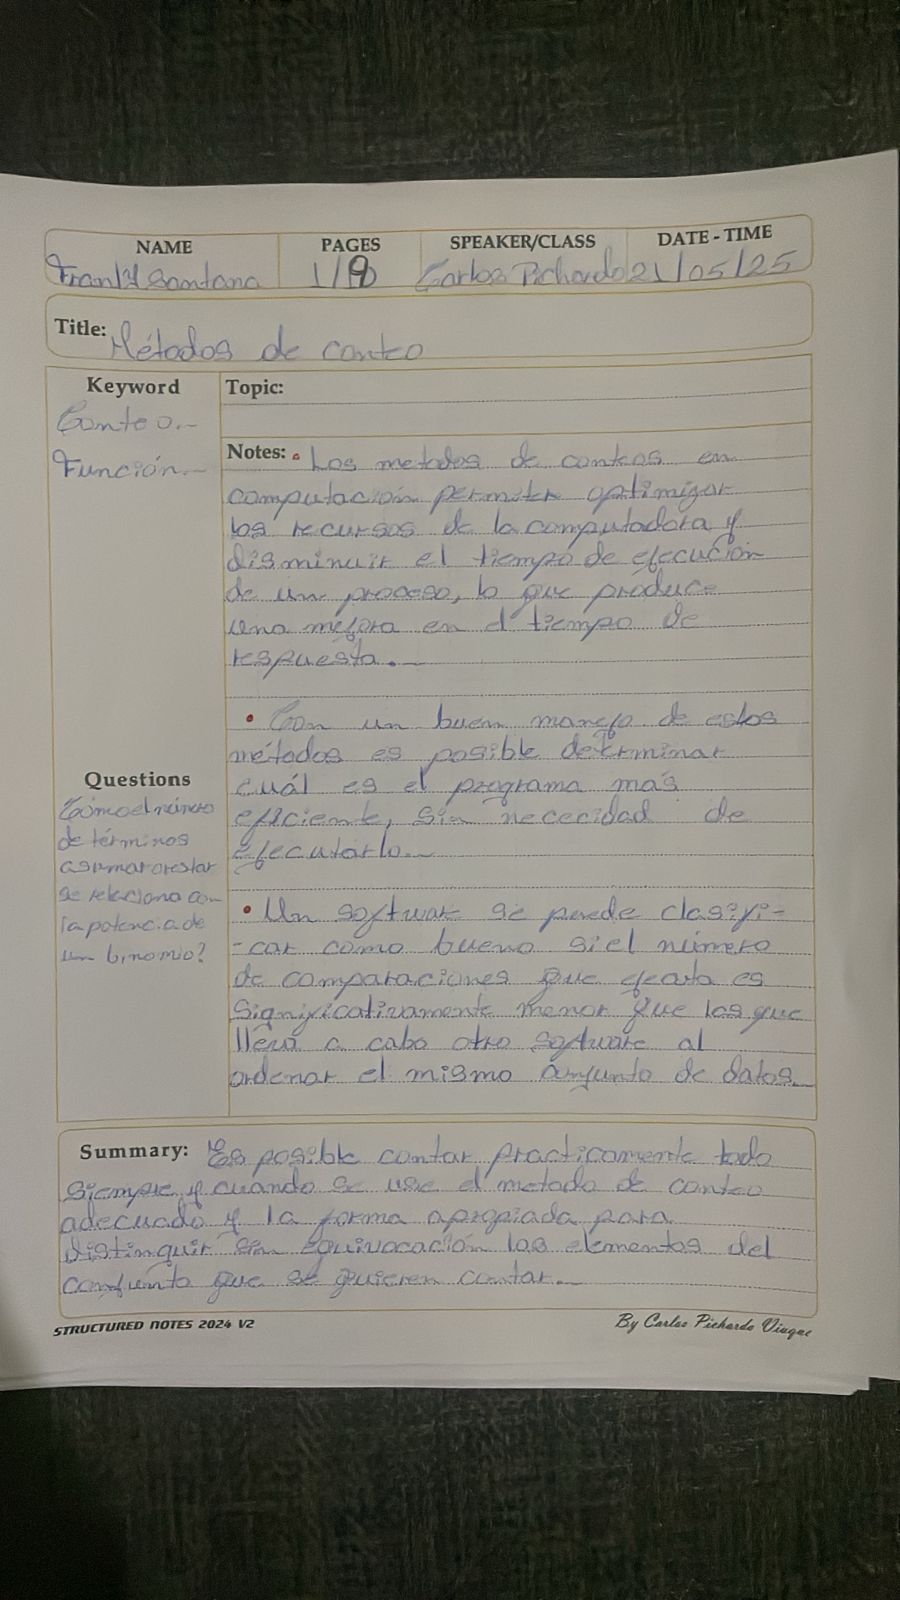 NAME PAGES SPEAKER/CLASS DATE - TIME
Frankly Santana 1/9 Carlos Pichardo 21/05/25
Title: Métodos de conteo
Keyword
Conteo.-
Función.-
Topic:
Notes: • Los metodos de conteos en
computación permiten optimizar
los recursos de la computadora y
disminuir el tiempo de ejecución
de un proceso, lo que produce
una mejora en el tiempo de
respuesta.-
• Con un buen manejo de estos
métodos es posible determinar
cuál es el programa más
eficiente, sin nececidad de
ejecutarlo.-
• Un software se puede clasifi-
-car como bueno si el número
de comparaciones que ejecuta es
significativamente menor que las que
lleva a cabo otro software al
ordenar el mismo conjunto de datos.-
Questions
Cómo el número
de términos
a sumar o restar
se relaciona con
la potencia de
un binomio?
Summary: Es posible contar practicamente todo
siempre y cuando se use el metodo de conteo
adecuado y la forma apropiada para
distinguir sin equivocación los elementos del
conjunto que se quieren contar.-
STRUCTURED NOTES 2024 V2
By Carlos Pichardo Viuque